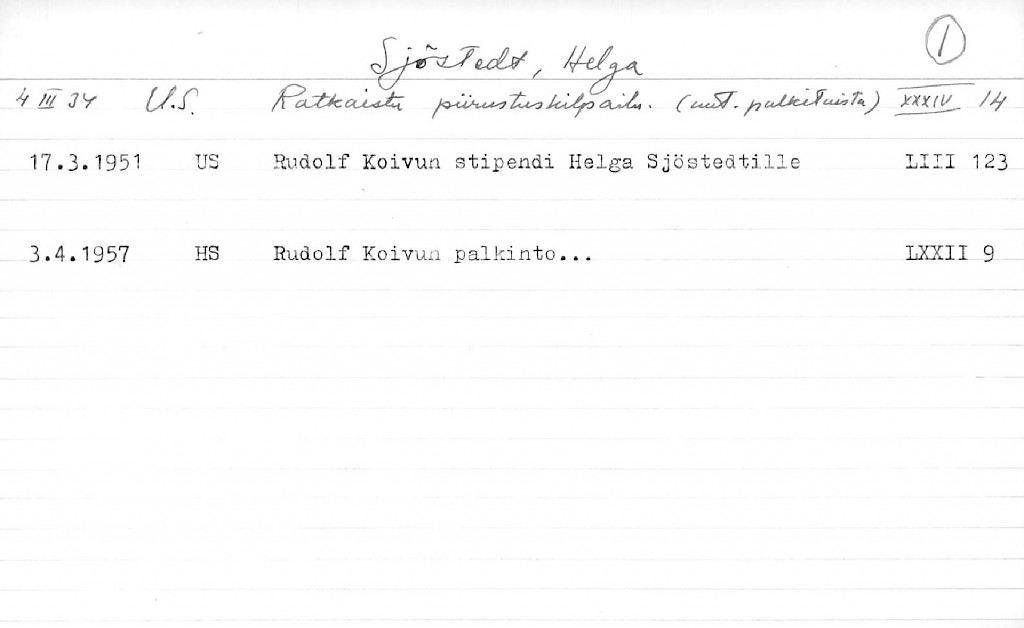 1
Sjöstedt, Helga
4 III 34 U.S. Ratkaistu piirustuskilpailu. (palkituista) XXXIV 14
17.3.1951 US Rudolf Koivun stipendi Helga Sjöstedtille LIII 123
3.4.1957 HS Rudolf Koivun palkinto... LXXII 9